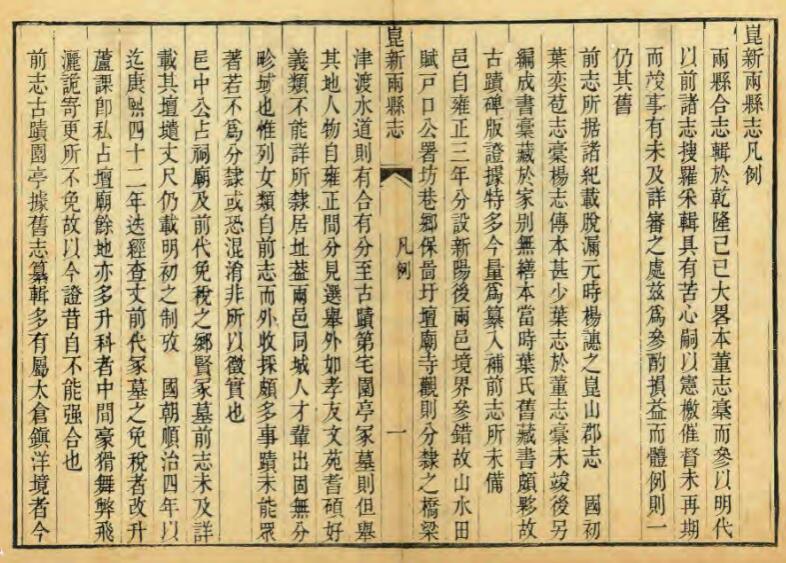 崑新兩縣志凡例
兩縣合志輯於乾隆己巳大畧本董志稾而參以明代
以前諸志搜羅采輯具有苦心嗣以憲檄催督未再期
而蕆事有未及詳審之處茲爲參酌損益而體例則一
仍其舊
前志所据諸紀載脫漏元時楊譓之崑山郡志 國初
葉奕苞志稾楊志傳本甚少葉志於董志稾未竣後另
編成書稾藏於家别無繕本當時葉氏舊藏書頗夥故
古蹟碑版證據特多今量爲纂入補前志所未備
邑自雍正三年分設新陽後兩邑境界參錯故山水田
賦戸口公署坊巷鄉保啚圩壇廟寺觀則分隸之橋梁
崑新兩縣志
凡例
一
津渡水道則有合有分至古蹟第宅園亭冢墓則但舉
其地人物自雍正間分見選舉外如孝友文苑耆碩好
義類不能詳所隸居址葢兩邑同城人才輩出固無分
畛域也惟列女類自前志而外收採頗多事蹟未能眾
著若不爲分隸或恐混淆非所以徵實也
邑中公占祠廟及前代免稅之鄉賢冢墓前志未及詳
載其壇壝丈尺仍載明初之制攷 國朝順治四年以
迄康熙四十二年迭經查丈前代冢墓之免稅者改升
蘆課卽私占壇廟餘地亦多升科者中間豪猾舞弊飛
灑詭寄更所不免故以今證昔自不能强合也
前志古蹟園亭據舊志纂輯多有屬太倉鎭洋境者今